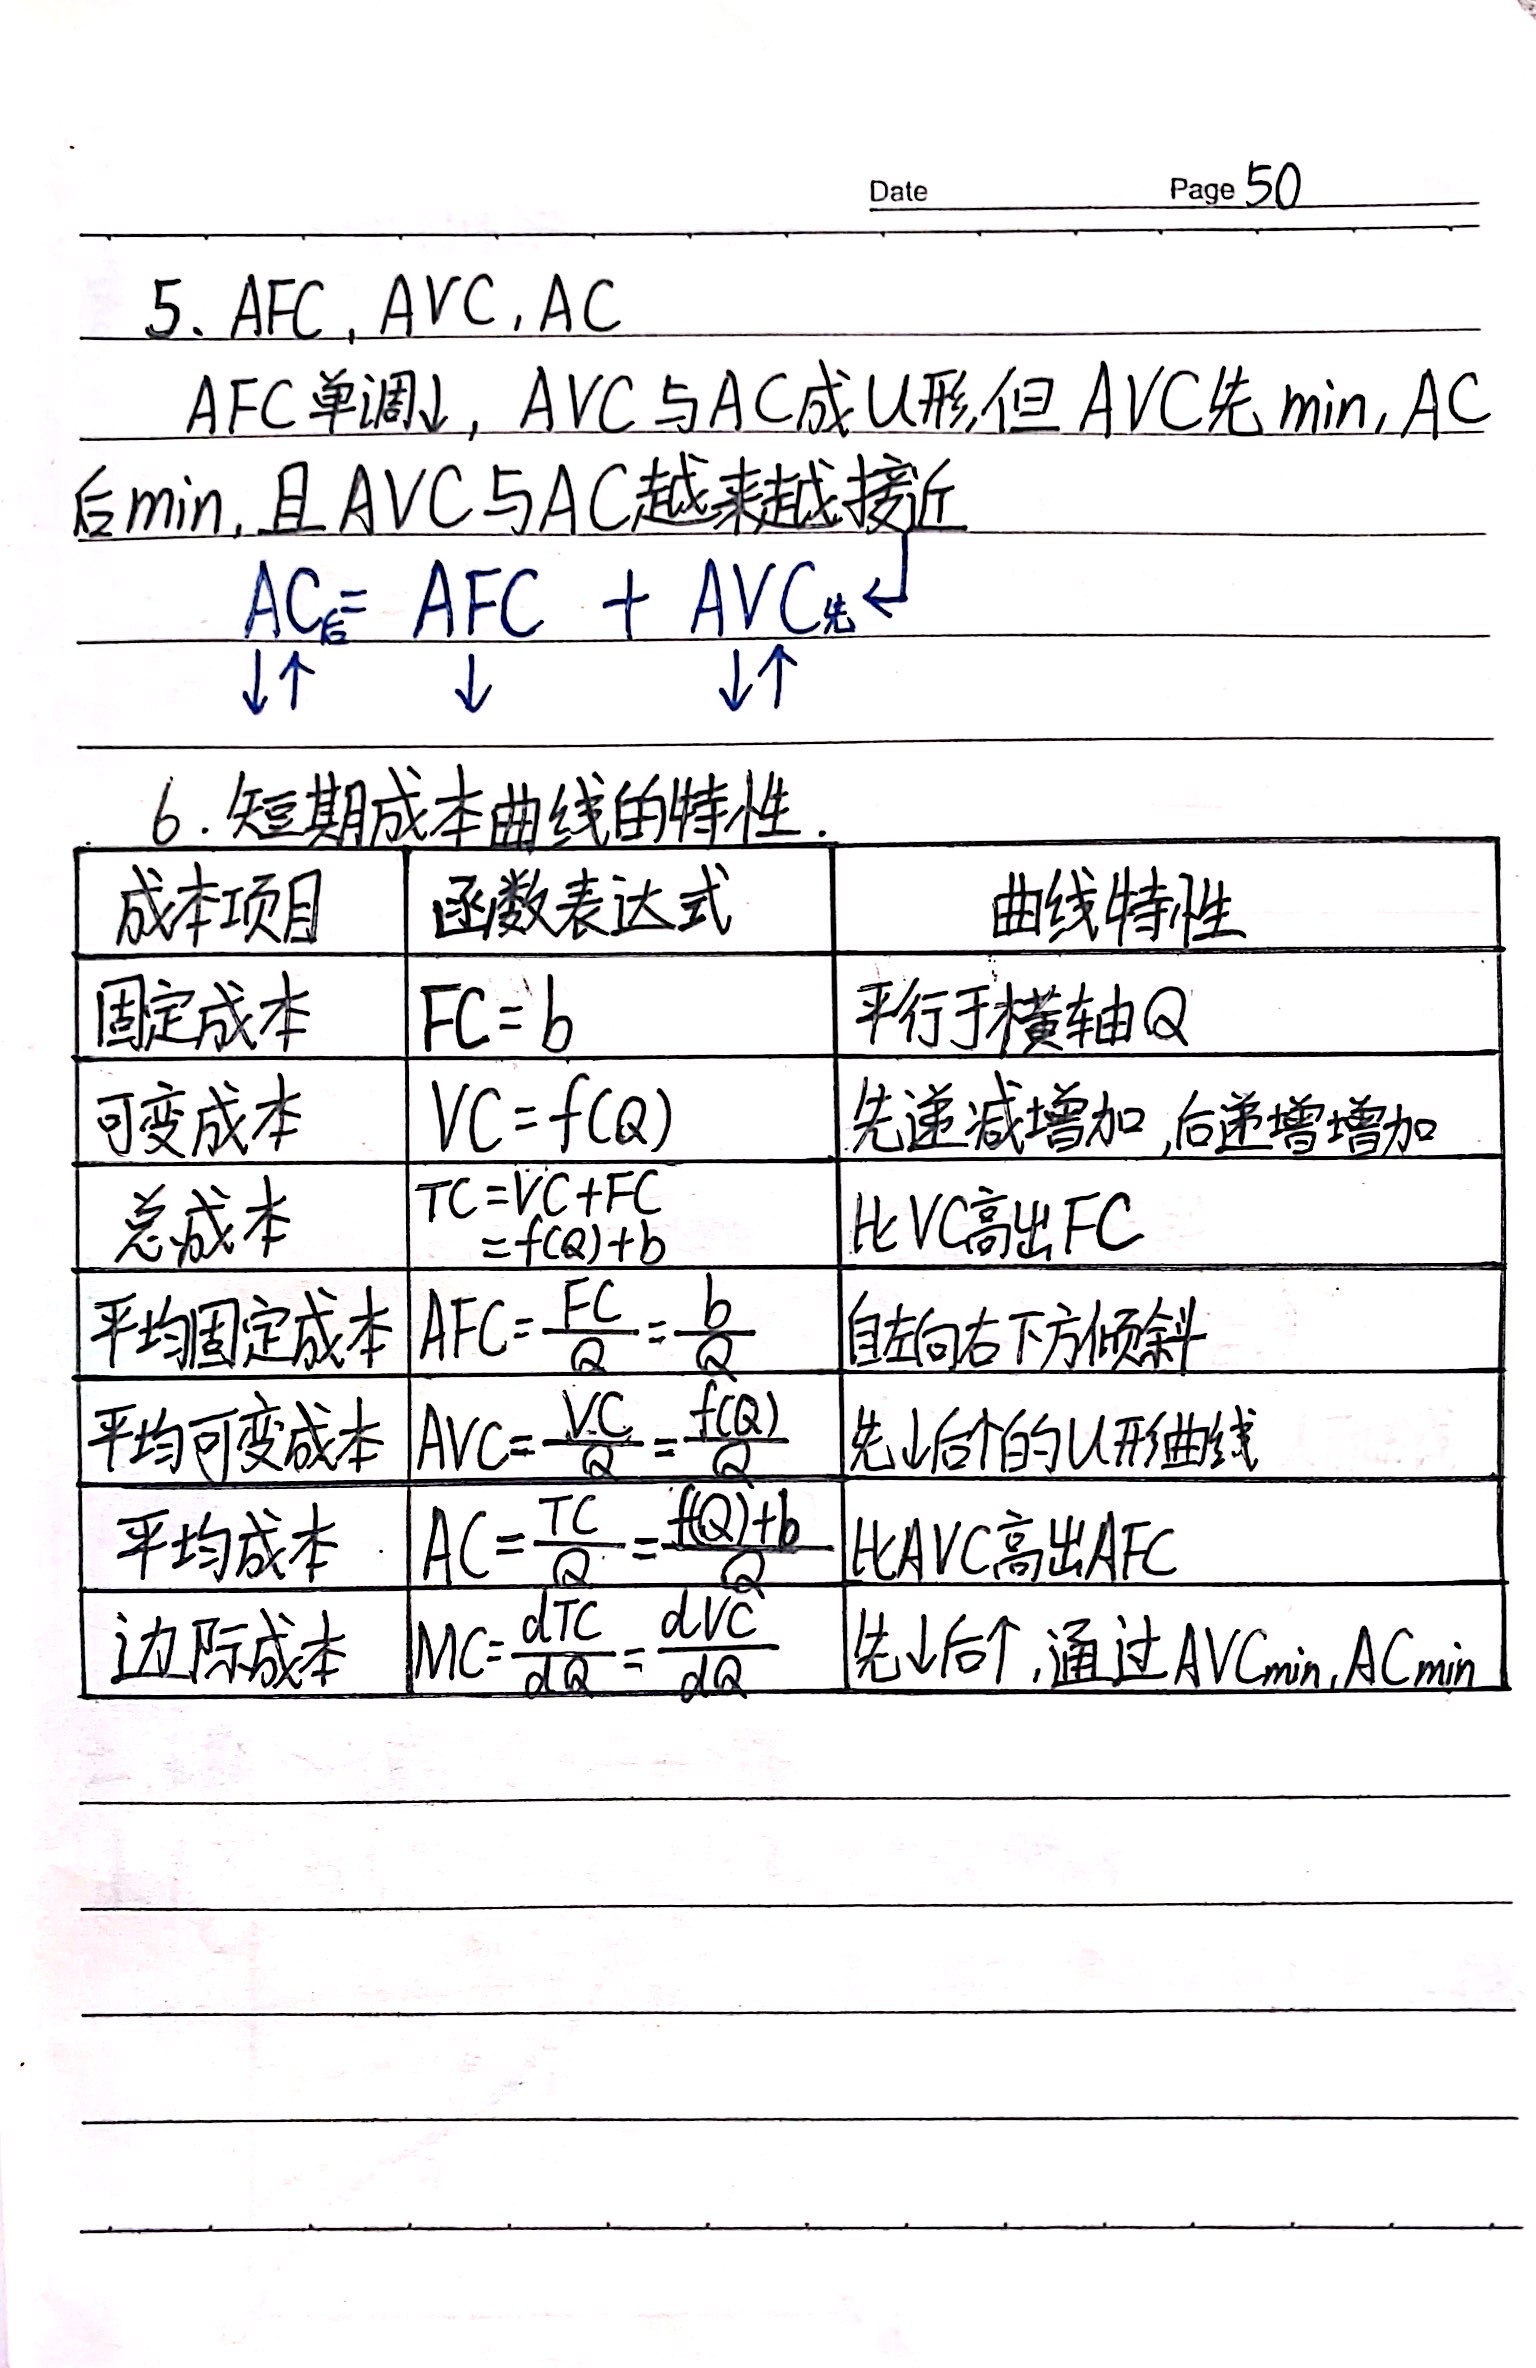 Date Page 50
5. AFC, AVC, AC
AFC单调↓, AVC与AC成U形,但AVC先min, AC
后min, 且AVC与AC越来越接近
AC后= AFC + AVC先 ↲
↓↑ ↓ ↓↑
6.短期成本曲线的特性.
成本项目 函数表达式 曲线特性
固定成本 FC=b 平行于横轴Q
可变成本 VC=f(Q) 先递减增加,后递增增加
总成本 TC=VC+FC 比VC高出FC
=f(Q)+b
平均固定成本 AFC=FC/Q=b/Q 自左向右下方倾斜
平均可变成本 AVC=VC/Q=f(Q)/Q 先↓后↑的U形曲线
平均成本 AC=TC/Q=f(Q)+b/Q 比AVC高出AFC
边际成本 MC=dTC/dQ=dVC/dQ 先↓后↑,通过AVCmin,ACmin